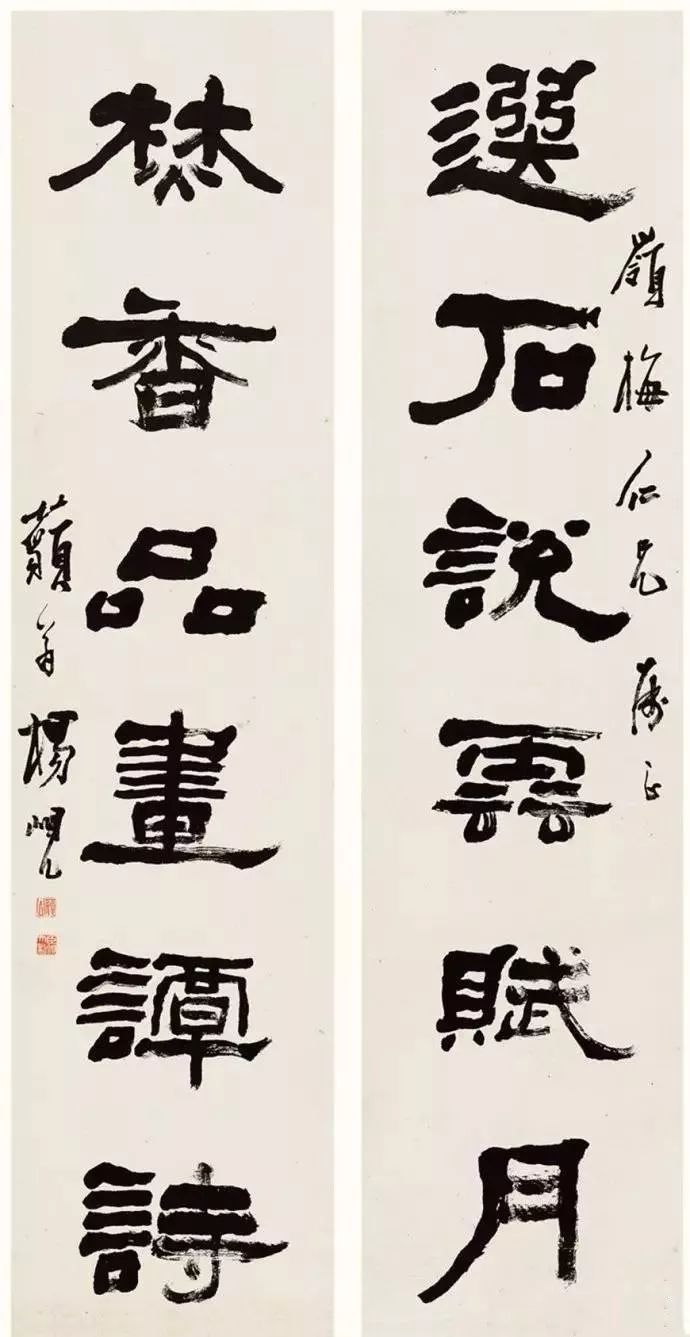 嶺梅仁兄屬正
選石說雲賦月
焚香品畫譚詩
藐翁楊峴